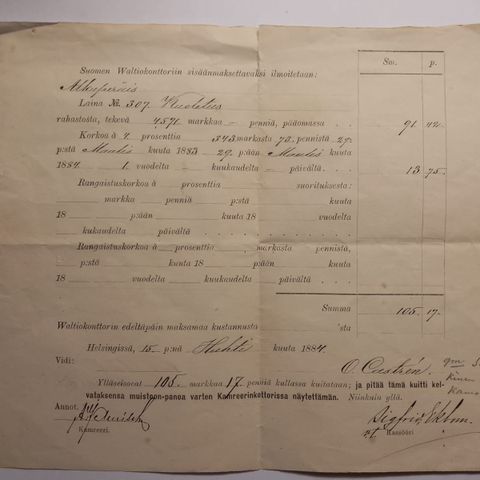 Suomen Waltiokonttoriin sisäänmaksettavaksi ilmoitetaan: Sm. p.
Alkuperäis
Laina № 307. Kudelius
rahastosta, tekevä 4571 markkaa — penniä, pääomassa . . 91. 42.
Korkoa à 4 prosenttia 343 markasta 73. pennistä 29.
p:stä Maalis kuuta 1883 29. p:ään Maalis kuuta
1884. — 1. vuodelta — kuukaudelta — päivältä . . . 13. 75.
Rangaistuskorkoa à prosenttia suorituksesta:
markka penniä p:stä kuuta
18 p:ään kuuta 18 vuodelta
kukaudelta päivältä . . . .
Rangaistuskorkoa à prosenttia markasta pennistä,
p:stä kuuta 18 p:ään kuuta
18 vuodelta kuukaudelta päivältä . . .
Summa 105. 17.
Waltiokonttorin edeltäpäin maksamaa kustannusta 'sta
Helsingissä, 15. p:nä Huhti kuuta 1884.
Vidi: O. Castrén.
Ylläseisovat 105. markkaa 17. penniä kullassa kuitataan; ja pitää tämä kuitti kel-
vataksensa muistoon-panoa varten Kamreerinkonttorissa näytettämän. Niinkuin yllä.
Annot.
Sigfrid Ekbom.
Kamreeri. v.t. Kassööri